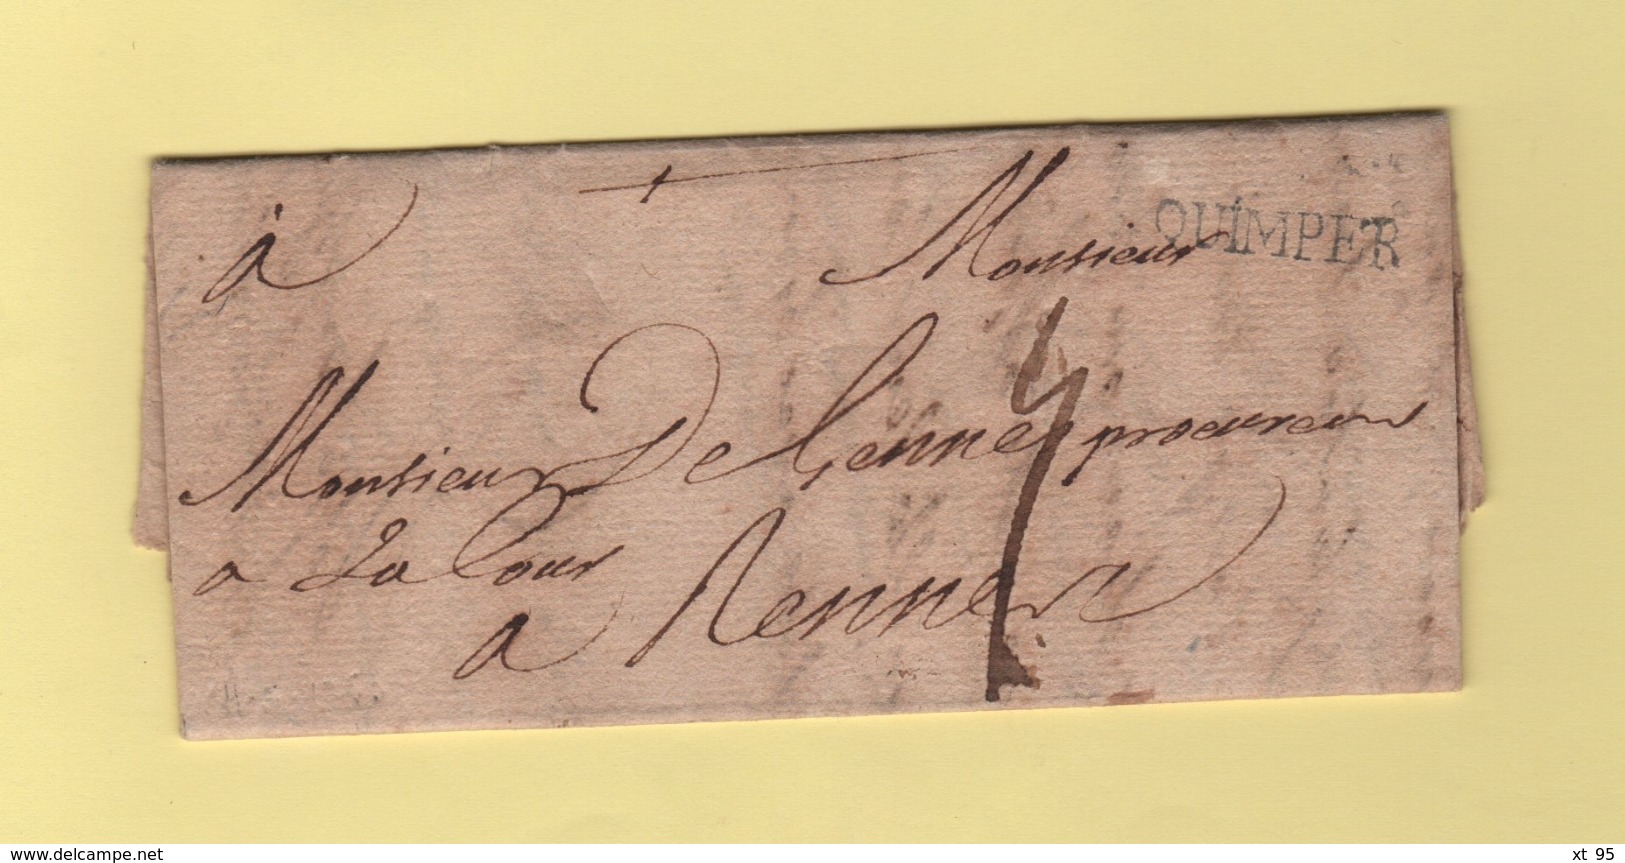 à Monsieur
QUIMPER
Monsieur De Cennes procureur
a La Cour
a Rennes
www.delcampe.net
xt 95